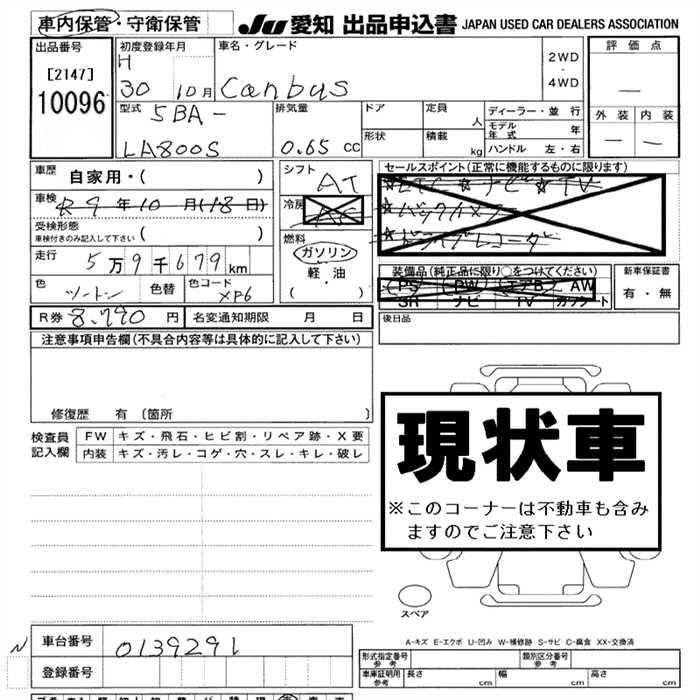 車内保管・守衛保管
JU 愛知 出品申込書 JAPAN USED CAR DEALERS ASSOCIATION
出品番号
[2147]
10096
初度登録年月
H
30 10月
車名・グレード
Canbus
2WD
・
4WD
評価点
―
外装 内装
― ―
型式
5BA-
LA800S
排気量
0.65 CC
ドア
形状
定員
人
積載
kg
ディーラー・並行
モデル年式 年
ハンドル 左・右
車歴
自家用・( )
車検
R9年10月(18日)
受検形態
車検付きのみ記入して下さい ( )
走行
5万9千679km
色
ツートン
色替
色コード
XP6
シフト
AT
冷房
燃料
ガソリン
軽・油
( ・ )
セールスポイント(正常に機能するものに限ります)
☆ETC ☆ナビ☆TV
☆バックカメラ
☆ドライブレコーダー
装備品(純正品に限り○をつけてください)
PS PW エアB AW
SR ナビ TV カワシート
新車保証書
有・無
R券 8,790 円
名変通知期限 月 日
後日品
注意事項申告欄(不具合内容等は具体的に記入して下さい)
修復歴 有 〔箇所 〕
検査員記入欄
FW キズ・飛石・ヒビ割・リペア跡・X要
内装 キズ・汚レ・コゲ・穴・スレ・キレ・破レ
現状車
※このコーナーは不動車も含みますのでご注意下さい
スペア
A-キズ E-エクボ U-凹み W-補修跡 S-サビ C-腐食 XX-交換済
N
車台番号 0139291
登録番号
形式指定番号 参考
類別区分番号 参考
車庫証明用 参考 長さ cm 幅 cm 高さ cm